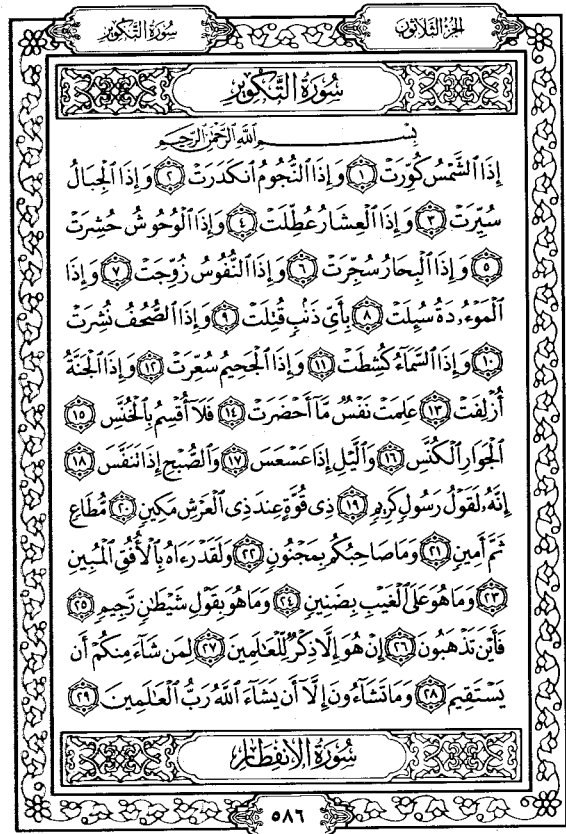 الجزء الثلاثون
سورة التكوير
سُورَةُ التَّكْوِيرِ
بِسْمِ اللَّهِ الرَّحْمَٰنِ الرَّحِيمِ
إِذَا ٱلشَّمْسُ كُوِّرَتْ ١ وَإِذَا ٱلنُّجُومُ ٱنكَدَرَتْ ٢ وَإِذَا ٱلْجِبَالُ
سُيِّرَتْ ٣ وَإِذَا ٱلْعِشَارُ عُطِّلَتْ ٤ وَإِذَا ٱلْوُحُوشُ حُشِرَتْ
٥ وَإِذَا ٱلْبِحَارُ سُجِّرَتْ ٦ وَإِذَا ٱلنُّفُوسُ زُوِّجَتْ ٧ وَإِذَا
ٱلْمَوْءُۥدَةُ سُئِلَتْ ٨ بِأَيِّ ذَنۢبٍ قُتِلَتْ ٩ وَإِذَا ٱلصُّحُفُ نُشِرَتْ
١٠ وَإِذَا ٱلسَّمَآءُ كُشِطَتْ ١١ وَإِذَا ٱلْجَحِيمُ سُعِّرَتْ ١٢ وَإِذَا ٱلْجَنَّةُ
أُزْلِفَتْ ١٣ عَلِمَتْ نَفْسٌ مَّآ أَحْضَرَتْ ١٤ فَلَآ أُقْسِمُ بِٱلْخُنَّسِ ١٥
ٱلْجَوَارِ ٱلْكُنَّسِ ١٦ وَٱلَّيْلِ إِذَا عَسْعَسَ ١٧ وَٱلصُّبْحِ إِذَا تَنَفَّسَ ١٨
إِنَّهُۥ لَقَوْلُ رَسُولٍ كَرِيمٍ ١٩ ذِى قُوَّةٍ عِندَ ذِى ٱلْعَرْشِ مَكِينٍ ٢٠ مُّطَاعٍ
ثَمَّ أَمِينٍ ٢١ وَمَا صَاحِبُكُم بِمَجْنُونٍ ٢٢ وَلَقَدْ رَءَاهُ بِٱلْأُفُقِ ٱلْمُبِينِ
٢٣ وَمَا هُوَ عَلَى ٱلْغَيْبِ بِضَنِينٍ ٢٤ وَمَا هُوَ بِقَوْلِ شَيْطَٰنٍ رَّجِيمٍ ٢٥
فَأَيْنَ تَذْهَبُونَ ٢٦ إِنْ هُوَ إِلَّا ذِكْرٌ لِّلْعَٰلَمِينَ ٢٧ لِمَن شَآءَ مِنكُمْ أَن
يَسْتَقِيمَ ٢٨ وَمَا تَشَآءُونَ إِلَّآ أَن يَشَآءَ ٱللَّهُ رَبُّ ٱلْعَٰلَمِينَ ٢٩
سُورَةُ الِانفِطَارِ
٥٨٦